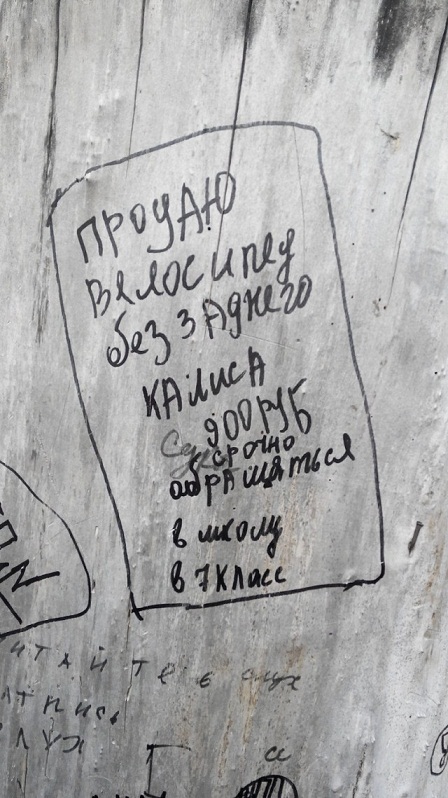 ПРОДАЮ
ВЕЛОСИПЕД
без ЗАДНЕГО
КАЛИСА
900 РУБ
СРОЧНО
абРАЩАТЬСЯ
в школу
в 7 класс
итайте в слух